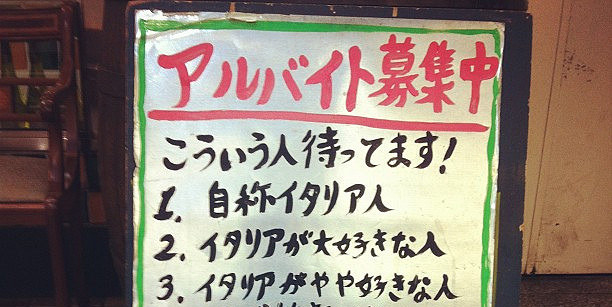 アルバイト募集中
こういう人待ってます!
1. 自称イタリア人
2. イタリアが大好きな人
3. イタリアがやや好きな人